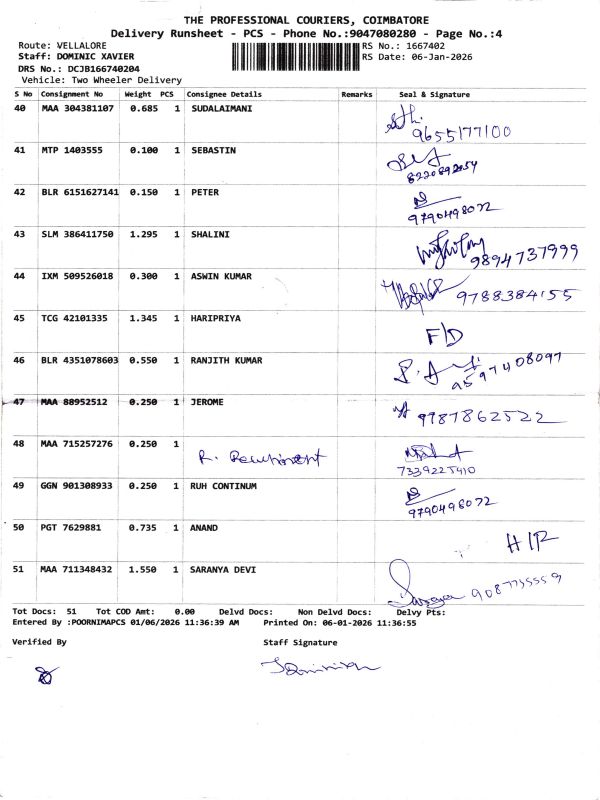 THE PROFESSIONAL COURIERS, COIMBATORE
Delivery Runsheet - PCS - Phone No.:9047080280 - Page No.:4
Route: VELLALORE RS No.: 1667402
Staff: DOMINIC XAVIER RS Date: 06-Jan-2026
DRS No.: DCJB166740204
Vehicle: Two Wheeler Delivery
S No Consignment No Weight PCS Consignee Details Remarks Seal & Signature
40 MAA 304381107 0.685 1 SUDALAIMANI
9655177100
41 MTP 1403555 0.100 1 SEBASTIN
42 BLR 6151627141 0.150 1 PETER
9790498072
43 SLM 386411750 1.295 1 SHALINI
9894737999
44 IXM 509526018 0.300 1 ASWIN KUMAR
9788384155
45 TCG 42101335 1.345 1 HARIPRIYA
F/D
46 BLR 4351078603 0.550 1 RANJITH KUMAR
9597408097
47 MAA 88952512 0.250 1 JEROME
9787862522
48 MAA 715257276 0.250 1
7339225910
49 GGN 901308933 0.250 1 RUH CONTINUM
9790498072
50 PGT 7629881 0.735 1 ANAND
51 MAA 711348432 1.550 1 SARANYA DEVI
Tot Docs: 51 Tot COD Amt: 0.00 Delvd Docs: Non Delvd Docs: Delvy Pts:
Entered By :POORNIMAPCS 01/06/2026 11:36:39 AM Printed On: 06-01-2026 11:36:55
Verified By Staff Signature